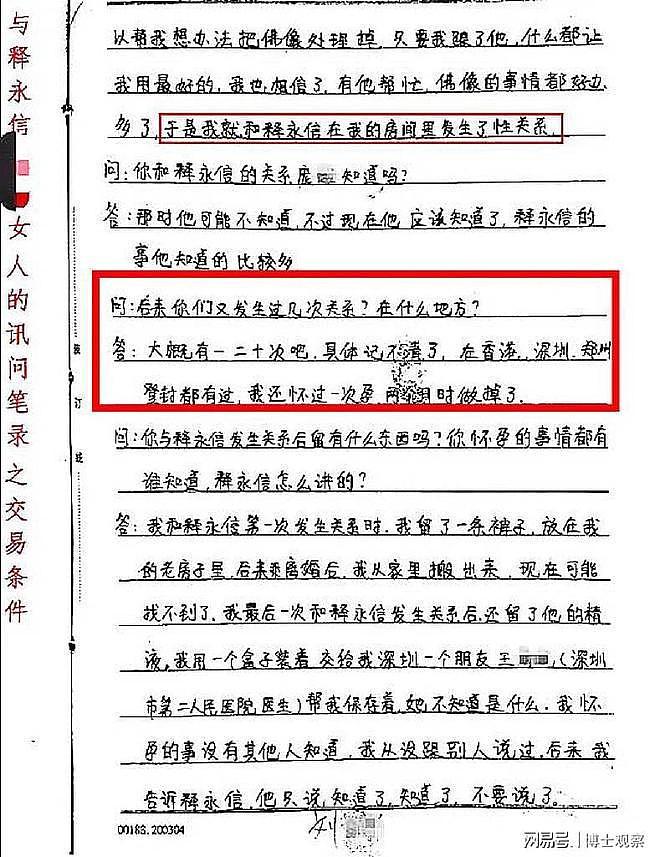 与释永信
女人的讯问笔录之交易条件
以帮我想办法把佛像处理掉,只要我跟了他,什么都让
我用最好的,我也相信了,有他帮忙,佛像的事情都好办
多了,于是我就和释永信在我的房间里发生了性关系。
问:你和释永信的关系庞 知道吗?
答:那时他可能不知道,不过现在他应该知道了,释永信的
事他知道的比较多
问:后来你们又发生过几次关系?在什么地方?
答:大概有一二十次吧,具体记不清了,在香港、深圳、郑州
登封都有过,我还怀过一次孕,两个月时做掉了。
问:你与释永信发生关系后留有什么东西吗?你怀孕的事情都有
谁知道,释永信怎么讲的?
答:我和释永信第一次发生关系时,我留了一条裤子,放在我
的老房子里,后来离婚后,我从家里搬出来,现在可能
找不到了,我最后一次和释永信发生关系后,还留了他的精
液,我用一个盒子装着交给我深圳一个朋友王 (深圳
市第二人民医院医生)帮我保存着,她不知道是什么。我怀
孕的事没有其他人知道,我从没跟别人说过,后来我
告诉释永信,他只说,知道了,知道了,不要说了。
装
订
线
00188.200304
刘
网易号 | 博士观察